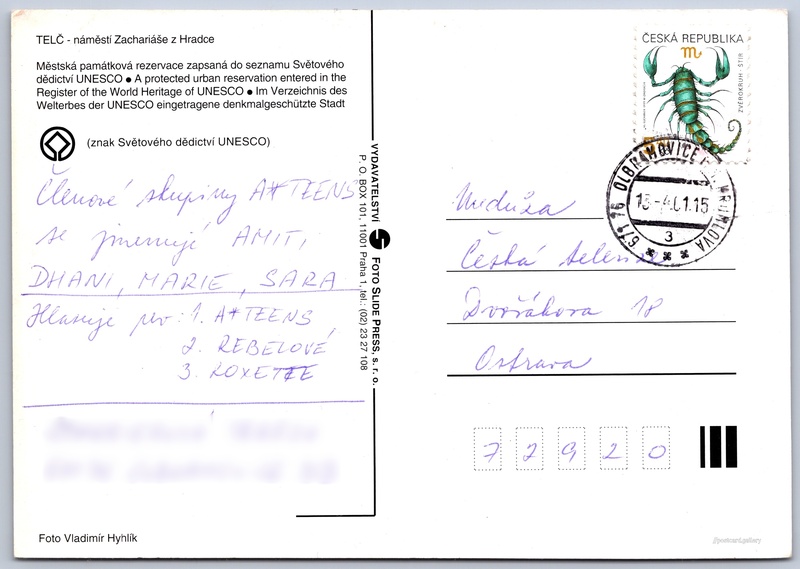 TELČ - náměstí Zachariáše z Hradce
Městská památková rezervace zapsaná do seznamu Světového
dědictví UNESCO ● A protected urban reservation entered in the
Register of the World Heritage of UNESCO ● Im Verzeichnis des
Welterbes der UNESCO eingetragene denkmalgeschützte Stadt
(znak Světového dědictví UNESCO)
Členové skupiny A*TEENS
se jmenují AMIT,
DHANI, MARIE, SARA
Hlasuje pro: 1. A*TEENS
2. REBELOVÉ
3. ROXETTE
Foto Vladimír Hyhlík
VYDAVATELSTVÍ FOTO SLIDE PRESS, s. r. o.
P. O. BOX 101, 11001 Praha 1, tel.: (02) 23 27 108
ČESKÁ REPUBLIKA
ZVĚROKRUH - ŠTÍR
671 76 OLBRAMOVICE U MOR. KRUMLOVA
13.-4.01.15
3
Meduza
Česká televize
Dvořákova 18
Ostrava
72920
//postcard.gallery